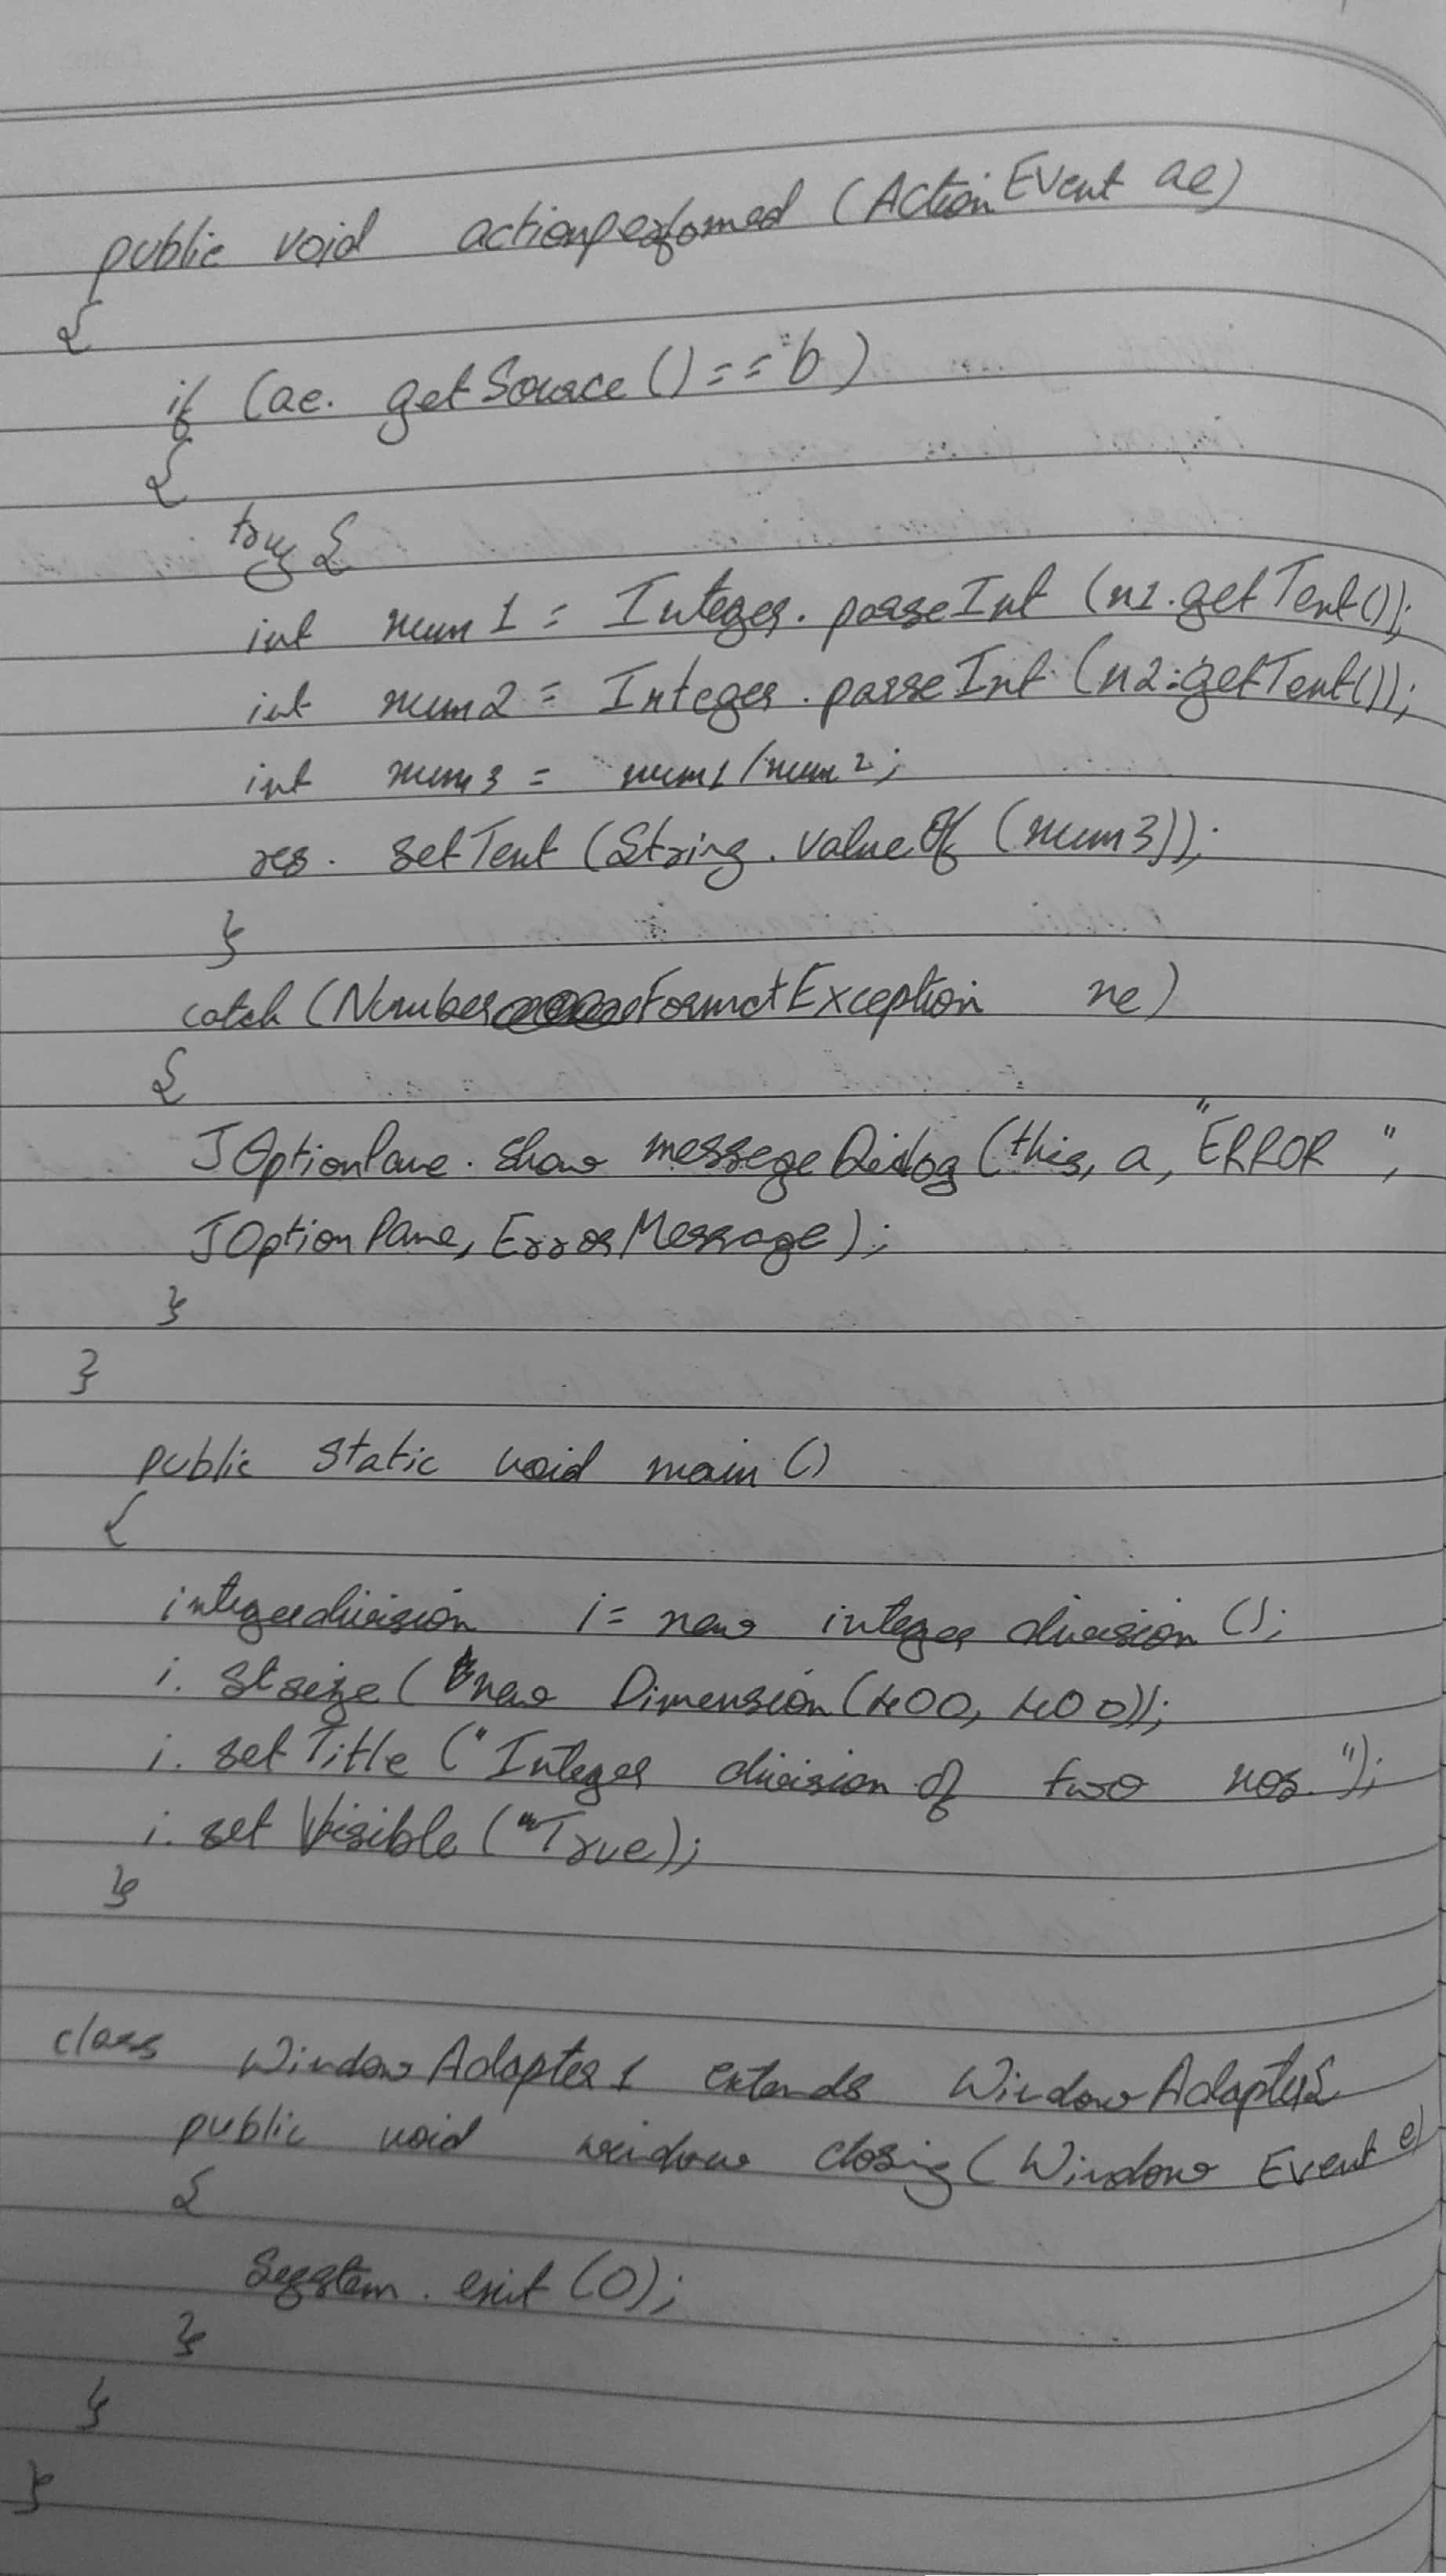 public void actionperformed (ActionEvent ae)
{
if (ae. getSource () == "b )
{
try {
int num 1 = Integer. parseInt (n1.getText());
int num2 = Integer. parseInt (n2.getText());
int num3 = num1/num2;
res. setText (String. valueOf (num3));
}
catch (Number FormatException ne)
{
JOptionPane. Show messegeDialog (this, a, "ERROR ",
JOptionPane, ErrorMessage);
}
}
public static void main ()
{
integerdivision i= new integer division ();
i. stsize ( new Dimension (400, 400));
i. set Title ("Integer division of two nos.");
i. set Visible ("True);
}
class WindowAdapter1 extends WindowAdapter{
public void window closing ( Window Event e)
{
System. exit (0);
}
}
}